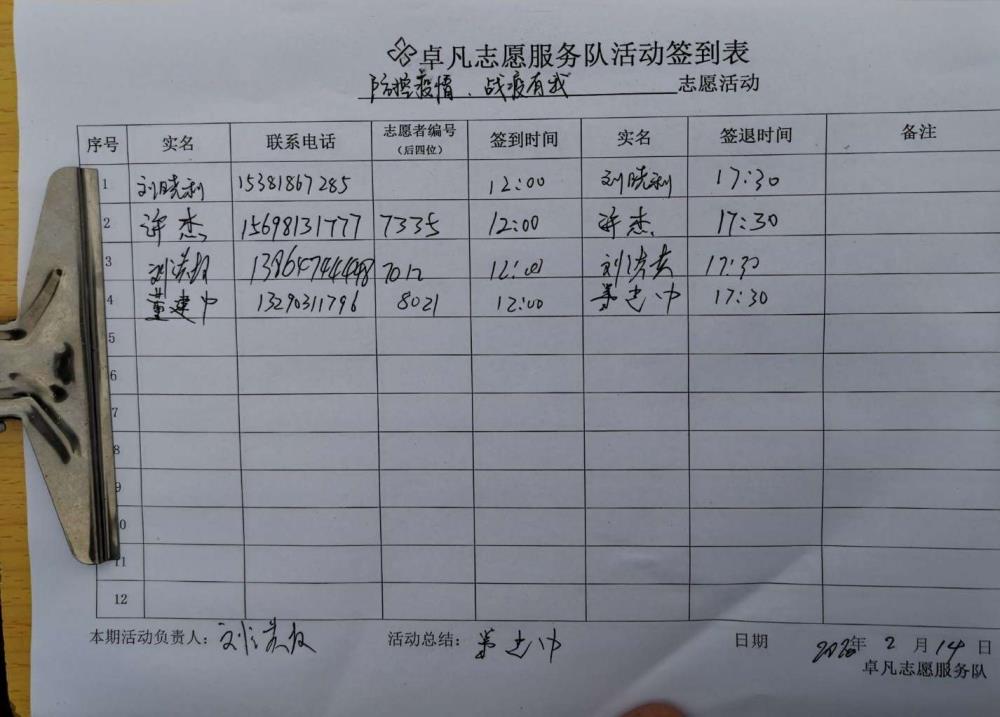 卓凡志愿服务队活动签到表
防控疫情、战疫有我 志愿活动
序号 实名 联系电话 志愿者编号（后四位） 签到时间 实名 签退时间 备注
1 刘晓利 15381867285 12:00 刘晓利 17:30
2 许杰 15698131777 7335 12:00 许杰 17:30
3 7012 12:00 17:30
4 董建中 13290311796 8021 12:00 董建中 17:30
5
6
7
8
9
10
11
12
本期活动负责人： 活动总结：董建中 日期 2020年2月14日
卓凡志愿服务队